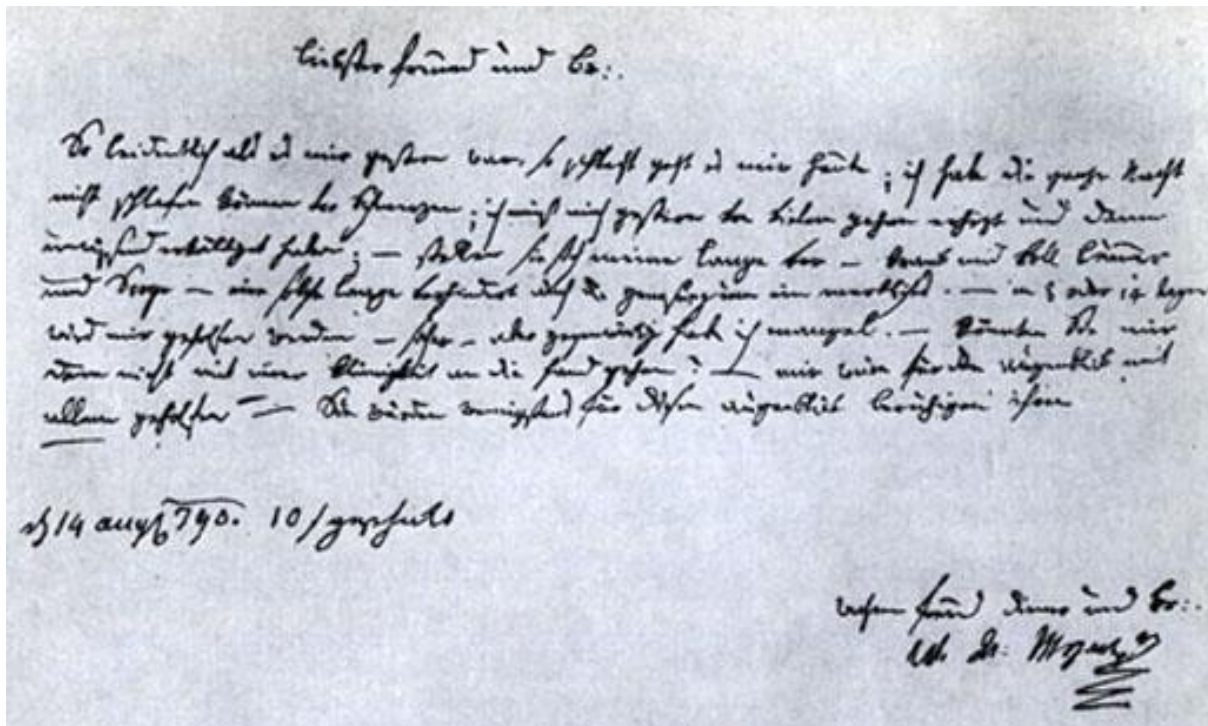 liebster freund und Br:.
So leidentlich als es mir gestern war, so schlecht geht es mir heute; ich habe die ganze Nacht
nicht schlafen können vor Schmerzen; ich muß mich gestern von vielem gehen erhizt und dann
unwissend erkältiget haben; — stellen sie sich meine Lage vor — krank und voll kummer
und Sorge — eine solche lage verhindert auch die genesung um ein merkliches. — in 8 oder 14 tagen
wird mir geholfen werden — sicher — aber gegenwärtig hab ich mangel. — könnten Sie mir
denn nicht mit einer kleinigkeit an die hand gehen? — mir wäre für den augenblick mit
allem geholfen — Sie würden wenigstens für diesen augenblick beruhigen ihren
14 aug 790. 10 f geschickt
wahren freund diener und Br:.
Mozart